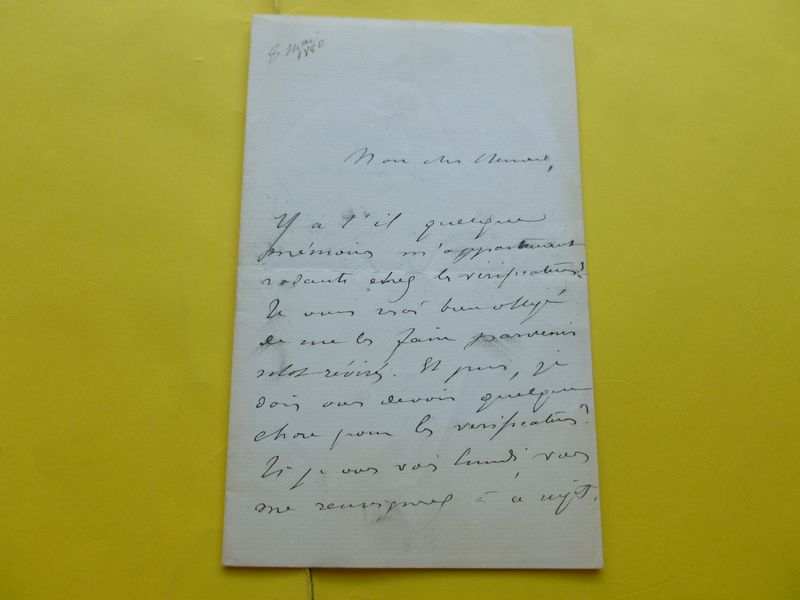 8 Mai
1880
Mon cher
Y a t'il quelque
mémoires m'appartenant
rodants chez les vérificateurs?
Je vous serai bien obligé
de me les faire parvenir
sitot révisés. Et puis, je
dois vous devoir quelque
chose pour les verificateurs?
Si je vous vois lundi, vous
me renseignerez à ce sujet.